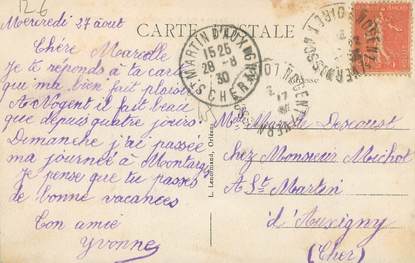 126
Mercredi 27 août
CARTE POSTALE
Chère Marcelle
Je te réponds à ta carte
qui m'a bien fait plaisir
A Nogent il fait beau
que depuis quatre jours.
Dimanche j'ai passée
ma journée à Montargis
Je pense que tu passes
de bonne vacances
Ton amie
Yvonne
ST MARTIN D'AUXIGNY
15 25
28 - 8
30
CHER
NOGENT S. VERNISSON
LOIRET
L. Lenormand, Orléans
Melle Marcelle
chez Monsieur Michot
A St Martin
d'Auxigny
(Cher)